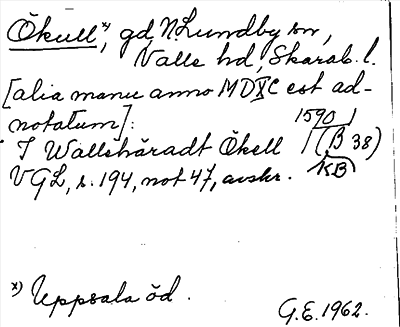 Ökull*), gd, N. Lundby sn,
Valle hd, Skarab. l.
[alia manu anno MDXC est ad-
notatum]:
1590
I Wallshäradt Ökell (B 38)
VGL, s. 194, not 47, avskr. KB
*) Uppsala öd.
G.E. 1962.